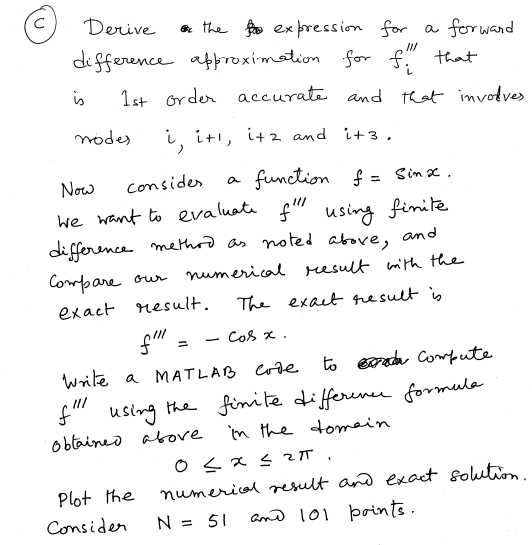 (C) Derive the expression for a forward
difference approximation for f_i''' that
is 1st order accurate and that involves
nodes i, i+1, i+2 and i+3.
Now consider a function f = Sin x.
We want to evaluate f''' using finite
difference method as noted above, and
Compare our numerical result with the
exact result. The exact result is
f''' = - cos x.
Write a MATLAB code to compute
f''' using the finite difference formula
obtained above in the domain
0 ≤ x ≤ 2π.
Plot the numerical result and exact solution.
Consider N = 51 and 101 points.